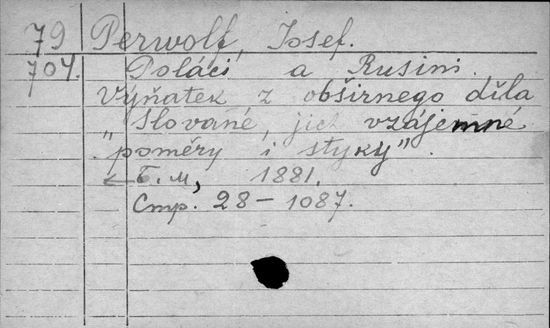 79 Perwolf, Josef.
704. Poláci a Rusini.
Výňatek z obširnego díla
„Slované, jich vzájemné
poměry i styky".
Б. м, 1881.
Стр. 28-1087.